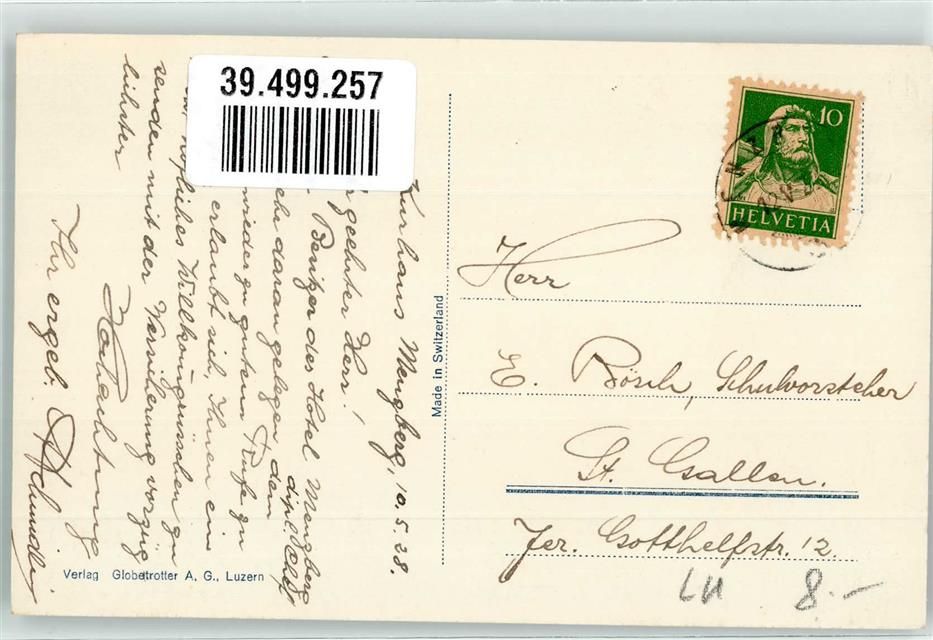 39.499.257
Kurhaus Menzberg, 10.5.28.
geehrter Herr!
Besitzer des Hotel Menzberg
daran gelegen, dem
wieder zu gutem Rufe zu
erlaubt sich, Ihnen ein
höfliches Willkomm zu
senden mit der Versicherung vorzüg
lichster
Hochachtung
Ihr ergeb.
Made in Switzerland
10
HELVETIA
Herr
E. Bösch, Schulvorsteher
St. Gallen.
Jer. Gotthelfstr. 12.
Verlag Globetrotter A. G., Luzern
LU 8.-